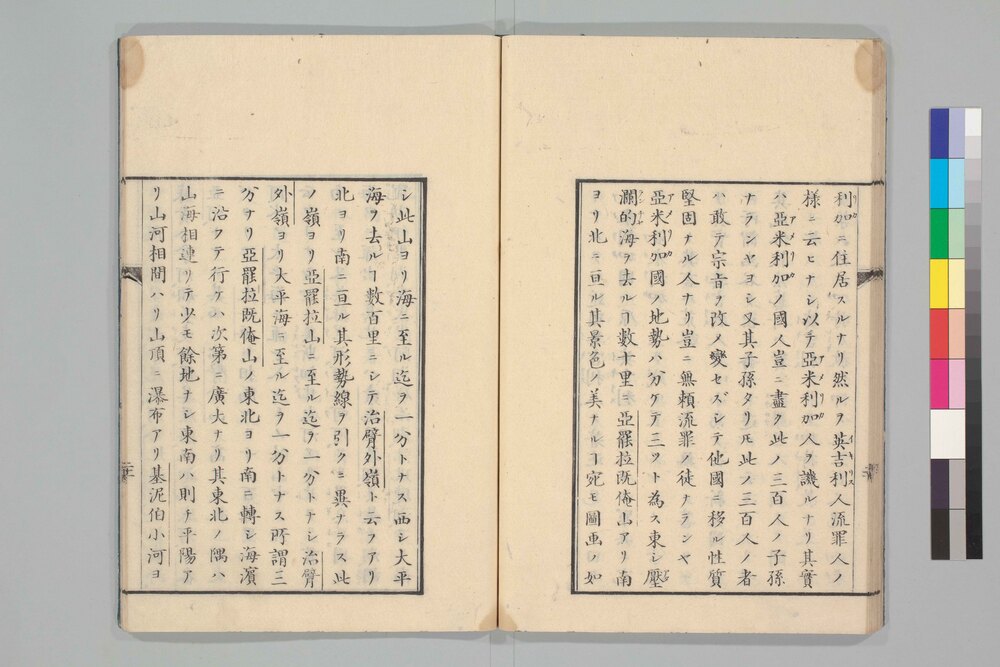 利加ニ住居スルナリ然ルヲ英吉利人流罪人ノ
様ニ云ヒナシ以テ亞米利加人ヲ譏ルナリ其實
ハ亞米利加ノ國人豈ニ盡ク此ノ三百人ノ子孫
ナランヤヨシ又其子孫タリ𪜈此ノ三百人ノ者
ハ敢テ宗旨ヲ改メ變セズシテ他國ニ移ル性質
堅固ナル人ナリ豈ニ無頼流罪ノ徒ナランヤ
亞米利加國ノ地勢ハ分ケテ三ツト為ス東シ壓
瀾的海ヲ去ルヿ數十里ニ亞罷拉既俺山アリ南
ヨリ北ニ亘ル其景色ノ美ナルヿ宛モ圖画ノ如
シ此山ヨリ海ニ至ル迄ヲ一分トナス西シ大平
海ヲ去ルヿ數百里ニシテ治臂外嶺ト云フアリ
北ヨリ南ニ亘ル其形勢線ヲ引クニ異ナラス此
ノ嶺ヨリ亞罷拉山ニ至ル迄ヲ一分トナシ治臂
外嶺ヨリ大平海ニ至ル迄ヲ一分トナス所謂三
分ナリ亞罷拉既俺山ノ東北ヨリ南ニ轉シ海濱
ニ沿フテ行ケハ次第ニ廣大ナリ其東北ノ隅ハ
山海相連リテ少モ餘地ナシ東南ハ則チ平陽ア
リ山河相間ハリ山頂ニ瀑布アリ基泥伯小河ヨ